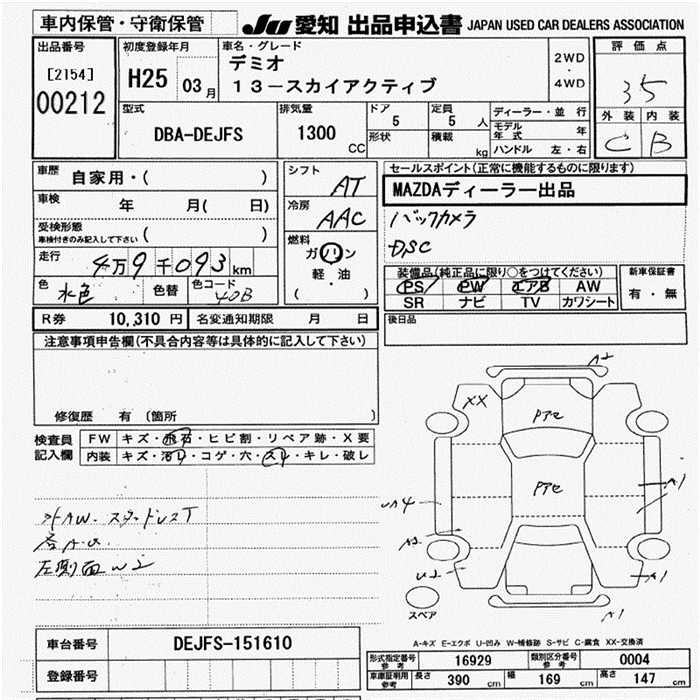 車内保管・守衛保管
JU 愛知 出品申込書 JAPAN USED CAR DEALERS ASSOCIATION
出品番号
[2154]
00212
初度登録年月
H25 03月
車名・グレード
デミオ
13－スカイアクティブ
2WD
・
4WD
評価点
3.5
外装 内装
C B
型式
DBA-DEJFS
排気量
1300
CC
ドア
5
定員
5 人
形状
積載
kg
ディーラー・並行
モデル年式 年
ハンドル 左・右
車歴
自家用・( )
車検
年 月( 日)
受検形態
車検付きのみ記入して下さい ( )
走行
4万9千093km
色
水色
色替
色コード
40B
シフト
AT
冷房
AAC
燃料
ガソリン
軽・油
( )
セールスポイント(正常に機能するものに限ります)
MAZDAディーラー出品
バックカメラ
DSC
装備品(純正品に限り○をつけてください)
PS PW エアB AW
SR ナビ TV カワシート
新車保証書
有・無
後日品
R券 10,310 円 名変通知期限 月 日
注意事項申告欄(不具合内容等は具体的に記入して下さい)
修復歴 有 (箇所 )
検査員
記入欄
FW キズ・飛石・ヒビ割・リペア跡・X要
内装 キズ・汚れ・コゲ・穴・スレ・キレ・破レ
外AW.スタッドレスT
各A.U.
左側面W2
A2
XX
Pアセ
Pアセ
UA4
A1
A2
U2
A1
A1
スペア
車台番号 DEJFS-151610
登録番号
A-キズ E-エクボ U-凹み W-補修跡 S-サビ C-腐食 XX-交換済
形式指定番号
参考
16929
類別区分番号
参考
0004
車庫証明用
参考
長さ 390 cm 幅 169 cm 高さ 147 cm